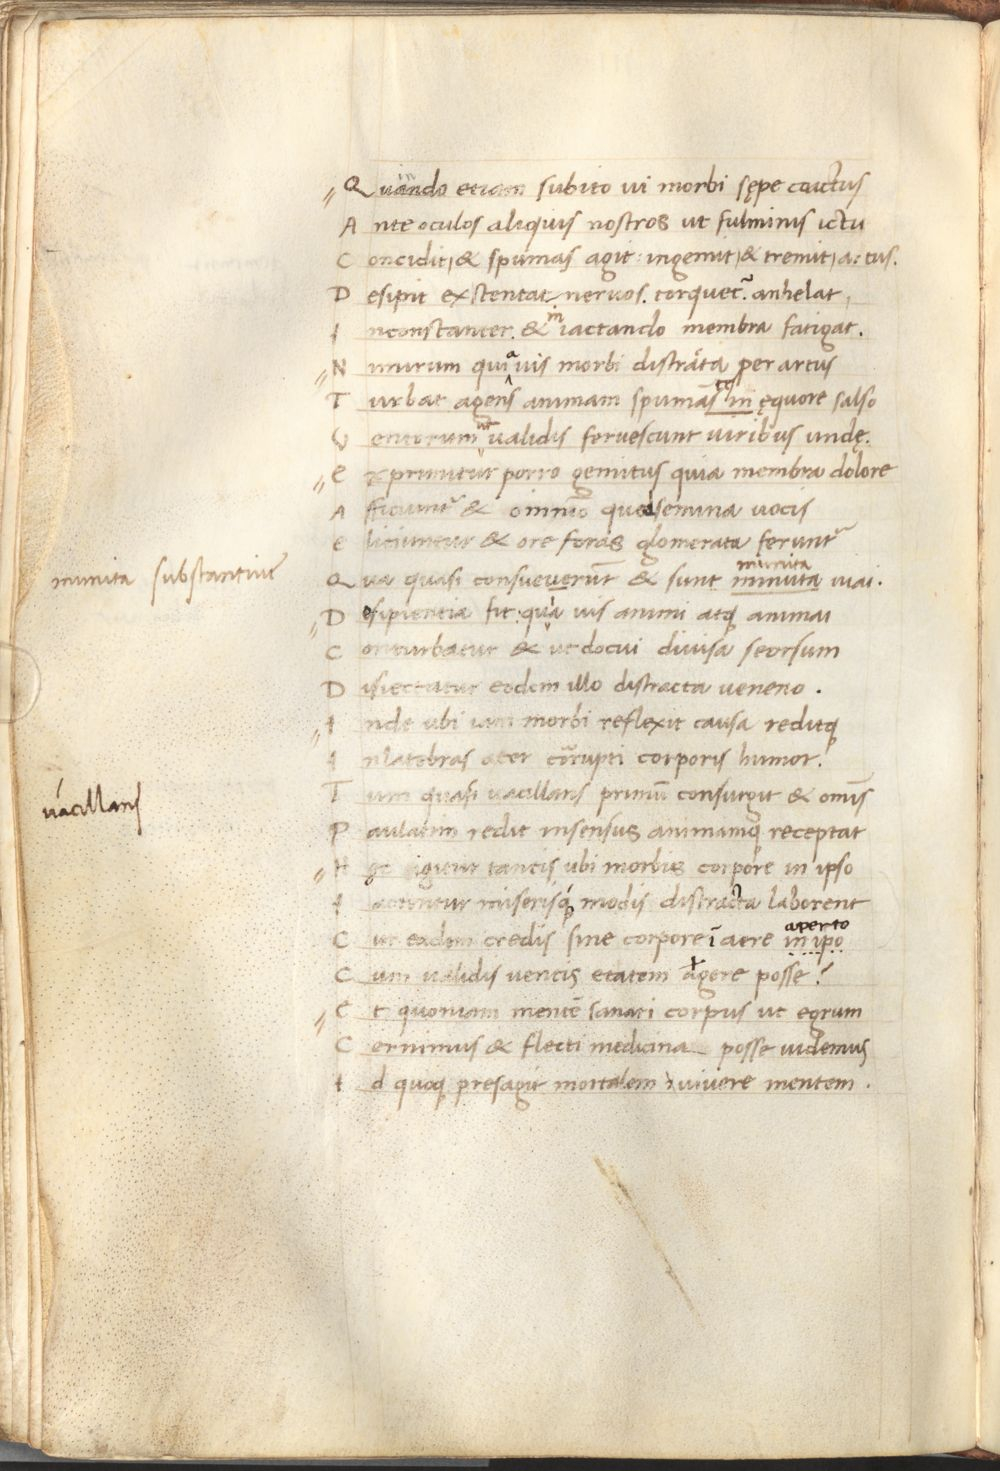 Quando etiam subito ui morbi sępe coactus
Ante oculos aliquis nostros ut fulminis ictu
Concidit, & spumas agit: ingemit, & tremit, artus.
Desipit extentat neruos. torquet: anhelat,
Inconstanter. & in iactando membra fatigat.
Nimirum quia uis morbi distracta per artus
Turbat agens animam spumas in ęquore salso
Ventorum ut ualidis feruescunt uiribus undę.
Exprimitur porro gemitus quia membra dolore
Afficiuntr & omnino quod semina uocis
eliciuntur & ore foras glomerata feruntr
munita
Qua quasi consueuerunt & sunt minuta uiai.
munita substantiue
Desipientia fit: quia uis animi atq animai
Conturbatur & ut docui diuisa seorsum
Disiectatur eodem illo distracta ueneno.
Inde ubi iam morbi reflexit causa reditq
In latebras acer corrupti corporis humor.
Tum quasi uacillans primū consurgit & omīs
uacillans
Paulatim redit in sensus animamq receptat
Hęc igitur tantis ubi morbis corpore in ipso
Iactentur miserisq modis distracta laborent
aperto
Cur eadem credis sine corpore ī aere in ipo
Cum ualidis uentis etatem agere posse?
Et quoniam mentē sanari corpus ut egrum
Cernimus & flecti medicina posse uidemus
Id quoq presagit mortalem uiuere mentem.